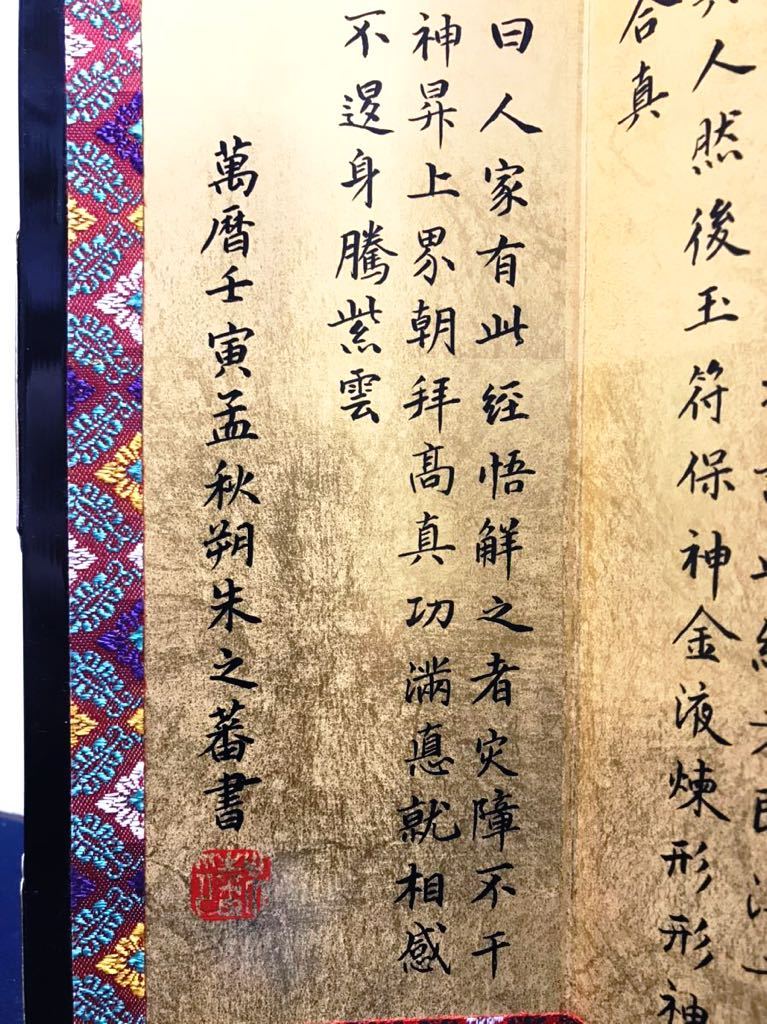 人然後玉符保神金液煉形形神
合真
曰人家有此經悟觧之者灾障不干
神昇上界朝拜高真功滿悳就相感
不退身騰紫雲
萬曆壬寅孟秋朔朱之蕃書